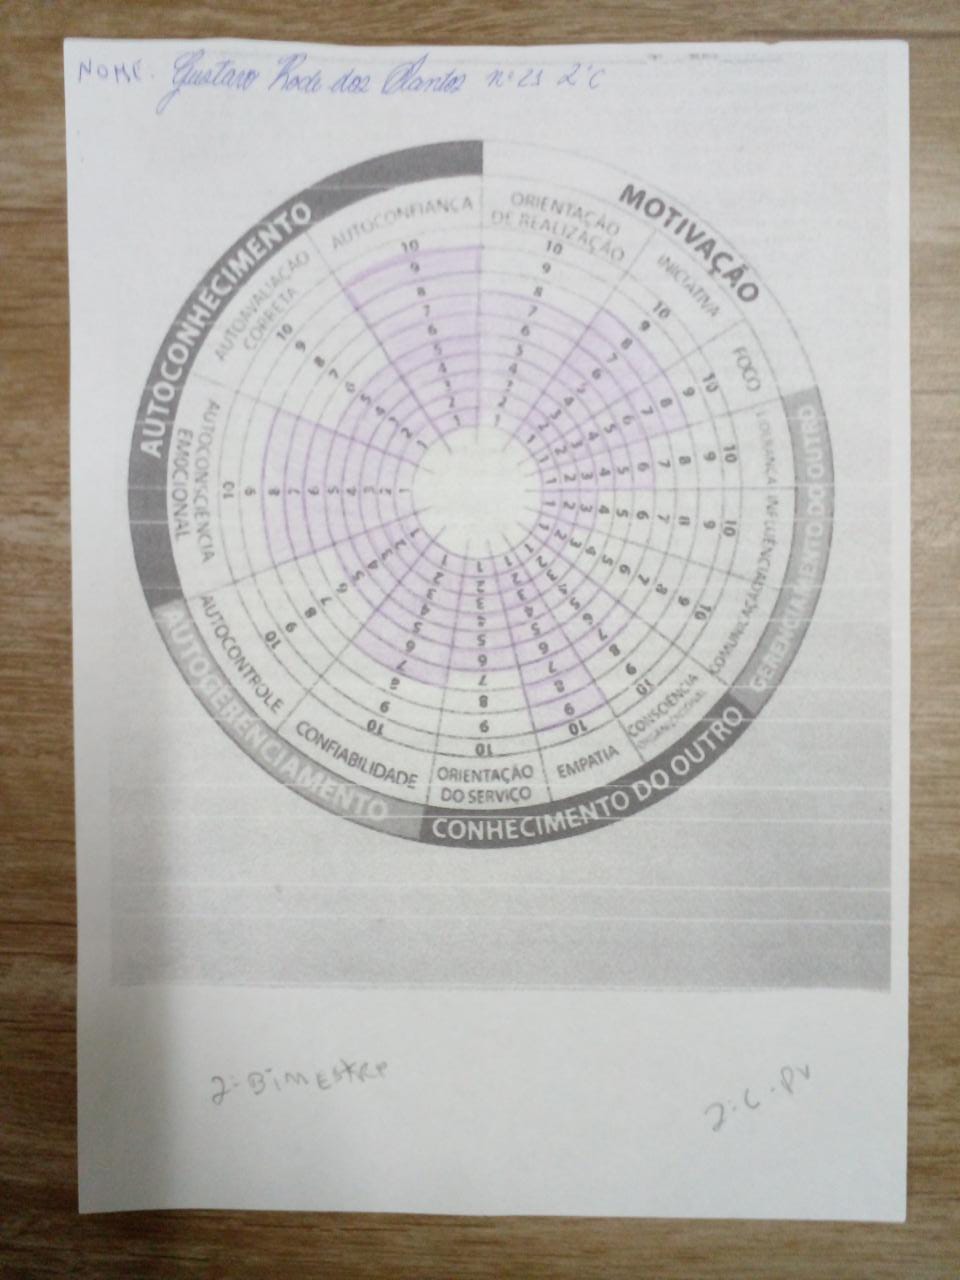 NOME: Gustavo Rode dos Santos nº 21 2ºC
AUTOCONHECIMENTO
MOTIVAÇÃO
GERENCIAMENTO DO OUTRO
CONHECIMENTO DO OUTRO
AUTOGERENCIAMENTO
AUTOCONFIANÇA
10 9 8 7 6 5 4 3 2 1
ORIENTAÇÃO
DE REALIZAÇÃO
10 9 8 7 6 5 4 3 2 1
INICIATIVA
10 9 8 7 6 5 4 3 2 1
FOCO
10 9 8 7 6 5 4 3 2 1
LIDERANÇA
10 9 8 7 6 5 4 3 2 1
INFLUÊNCIA
10 9 8 7 6 5 4 3 2 1
COMUNICAÇÃO
10 9 8 7 6 5 4 3 2 1
CONSCIÊNCIA
ORGANIZACIONAL
10 9 8 7 6 5 4 3 2 1
EMPATIA
10 9 8 7 6 5 4 3 2 1
ORIENTAÇÃO
DO SERVIÇO
10 9 8 7 6 5 4 3 2 1
CONFIABILIDADE
10 9 8 7 6 5 4 3 2 1
AUTOCONTROLE
10 9 8 7 6 5 4 3 2 1
AUTOCONSCIÊNCIA
EMOCIONAL
10 9 8 7 6 5 4 3 2 1
AUTOAVALIAÇÃO
CORRETA
10 9 8 7 6 5 4 3 2 1
2º BiMESTRE
2º C. PV